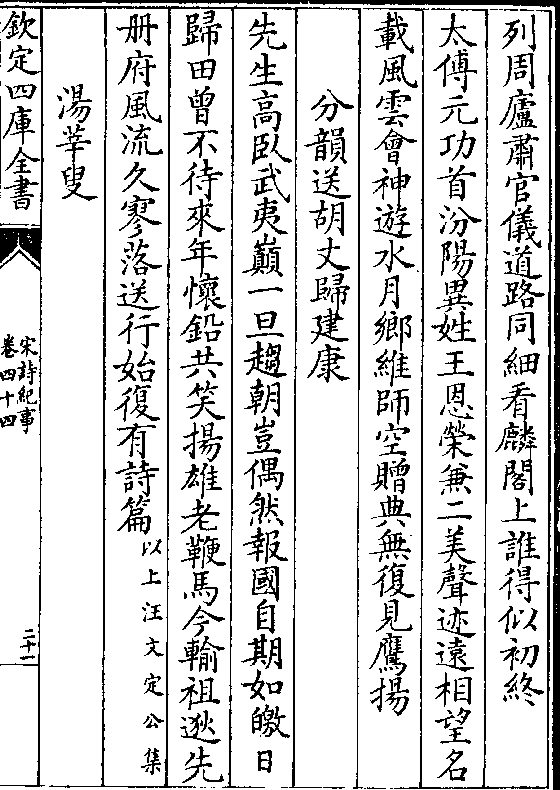 列周廬肅官儀道路同細看麟閣上誰得似初終
太傅元功首汾陽異姓王恩榮兼二美聲迹遠相望名
載風雲會神遊水月鄉維師空贈典無復見鷹揚
分韻送胡丈歸建康
先生高臥武夷巔一旦趨朝豈偶然報國自期如皦日
歸田曾不待來年懷鉛共笑揚雄老鞭馬今輸祖逖先
册府風流久寥落送行始復有詩篇以上汪文定公集
湯莘叟
欽定四庫全書
宋詩紀事
卷四十四
二十一